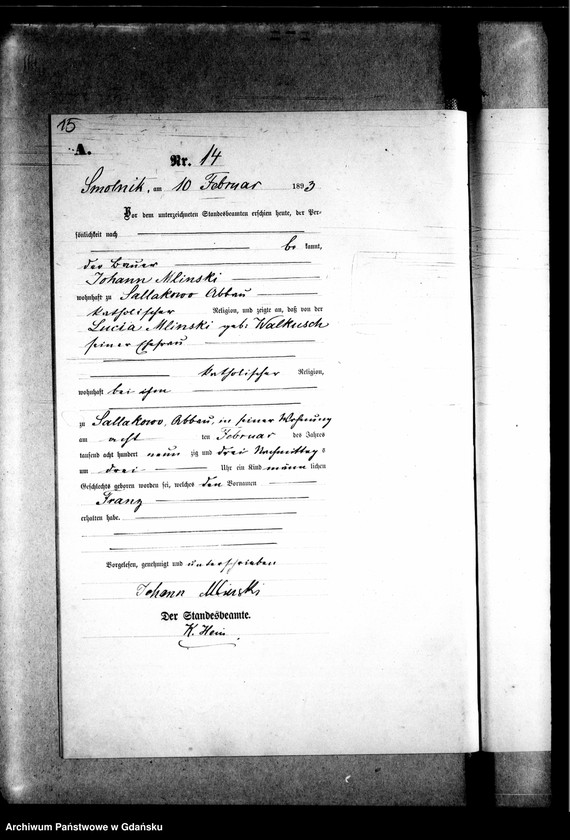 15
A.
Nr. 14
Smolnik, am 10 Februar 1893
Vor dem unterzeichneten Standesbeamten erschien heute, der Per-
sönlichkeit nach
be kannt,
der Bauer
Johann Mlinski
wohnhaft zu Sallakowo Abbau
katholischer Religion, und zeigte an, daß von der
Lucia Mlinski geb: Walkusch
seiner Ehefrau
katholischer Religion,
wohnhaft bei ihm
zu Sallakowo, Abbau, in seiner Wohnung
am acht ten Februar des Jahres
tausend acht hundert neun zig und drei Nachmittag s
um drei Uhr ein Kind männ lichen
Geschlechts geboren worden sei, welches den Vornamen
Franz
erhalten habe.
Vorgelesen, genehmigt und unterschrieben
Johann Mlinski
Der Standesbeamte.
K. Hein
Archiwum Państwowe w Gdańsku